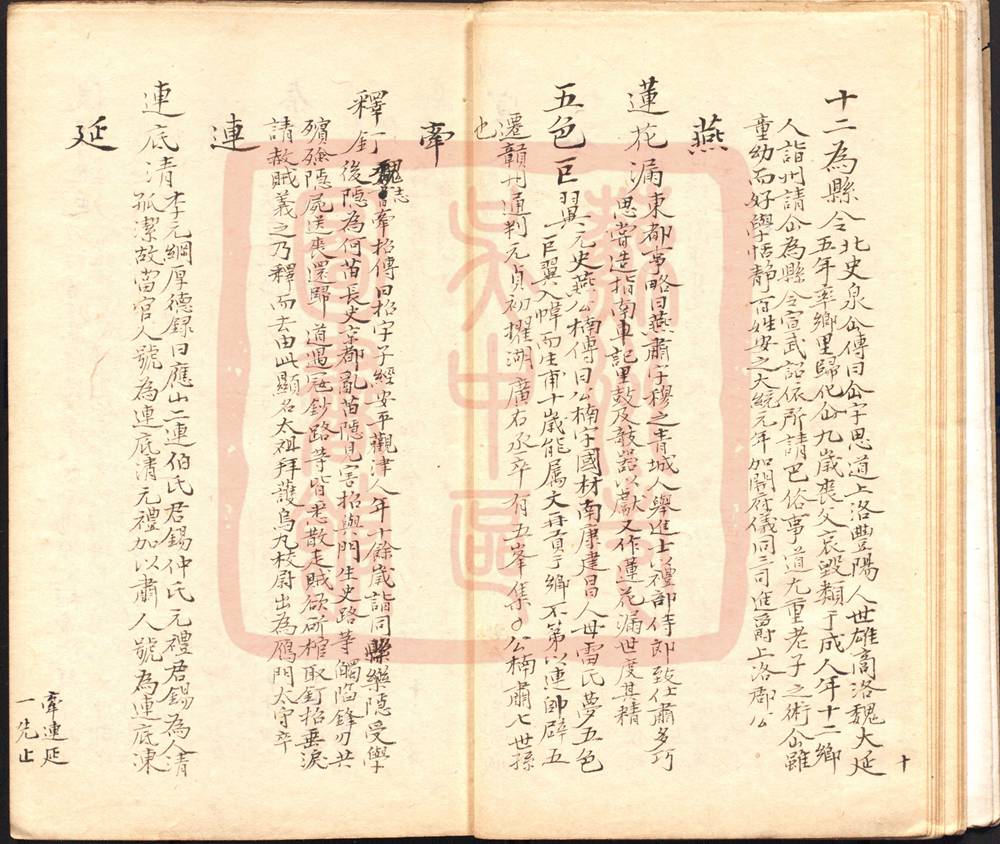 十二為縣令北史泉仚傳曰仚字思道上洛豐陽人世雄商洛魏大延
五年率鄉里歸化仚九歲喪父哀毀類于成人年十二鄉
人詣州請仚為縣令宣武詔依所請巴俗事道尤重老子之術仚雖
童幼而好學恬靜百姓安之大統元年加開府儀同三司進爵上洛郡公
燕
蓮花漏東都事略曰燕肅字穆之青城人舉進士以禮部侍郎致仕肅多巧
思嘗造指南車記里鼓及欹器以獻又作蓮花漏世度其精
五色巨翼元史燕公楠傳曰公楠字國材南康建昌人母雷氏夢五色
巨翼入幃而生甫十歲能屬文再貢于鄉不第以連帥辟五
遷贛州通判元貞初擢湖廣右丞卒有五峯集公楠肅七世孫
也
牽
釋釘魏志牽招傳曰招字子經安平觀津人年十餘歲詣同縣樂隱受學
後隱為何苗長史京都亂苗隱見害招與門生史路等觸陷鋒刃共
殯殮隱屍送喪還歸道遇寇鈔路等皆悉散走賊欲斫棺取釘招垂淚
請赦賊義之乃釋而去由此顯名太祖拜護烏丸校尉出為鴈門太守卒
連
連底清李元綱厚德録曰應山二連伯氏君錫仲氏元禮君錫為人清
孤潔故當官人號為連底清元禮加以肅人號為連底凍
延
牽連延
一先止
十
國家圖